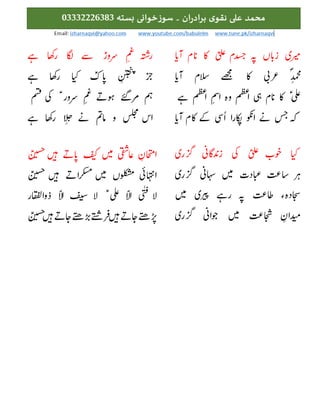 محمد علی نقوی برادران ۔ سوزخوانی بستہ 03332226383
Email: izharnaqvi@yahoo.com www.youtube.com/babulnlm www.tune.pk/izharnaqvi
میری زباں پہ جسدم علیؑ کا نام آیا
محمدؐ عربی کا مجھے سلام آیا
علیؑ کا نام ہی اعظم وہ اسمِ اعظم ہے
کہ جس نے انکو پکارا اُسی کے کام آیا
رشتہ غمِ سرورؑ سے لگا رکھا ہے
جُز پنجتنِ پاک کیا رکھا ہے
ہم مرگئے ہوتے غمِ سرورؑ کی قسم
اس مجلس و ماتم نے جِلا رکھا ہے
کیا خوب علیؑ کی زندگانی گزری
ہر ساعت عبادت میں سہانی گزری
سجادہءِ طاعت پہ رہے پیری میں
میدانِ شجاعت میں جوانی گزری
امتحانِ عاشقی میں کیف پاتے ہیں حسینؑ
انتہائی مشکلوں میں مسکراتے ہیں حسینؑ
لا فتیٰ الا علیؑ لا سیف الا ذوالفقار
پڑھتے جاتے ہیں فرشتے بڑھتے جاتے ہیں حسینؑ